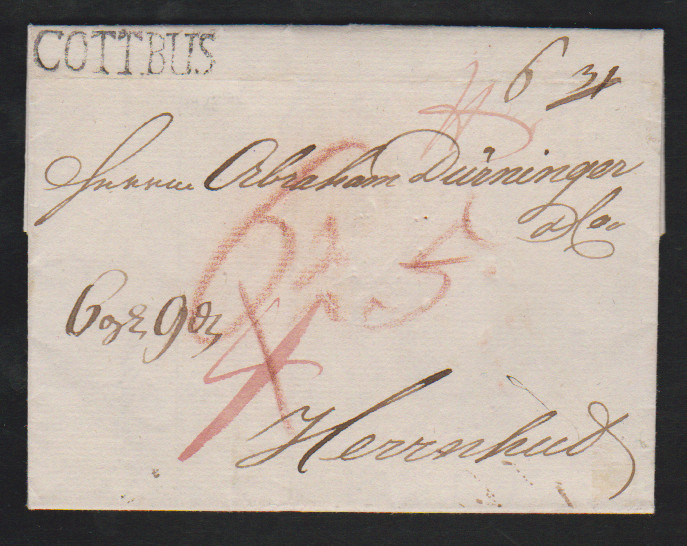 COTTBUS
6 31
Herren Abraham Dürninger
& Co
6 9
Herrnhut